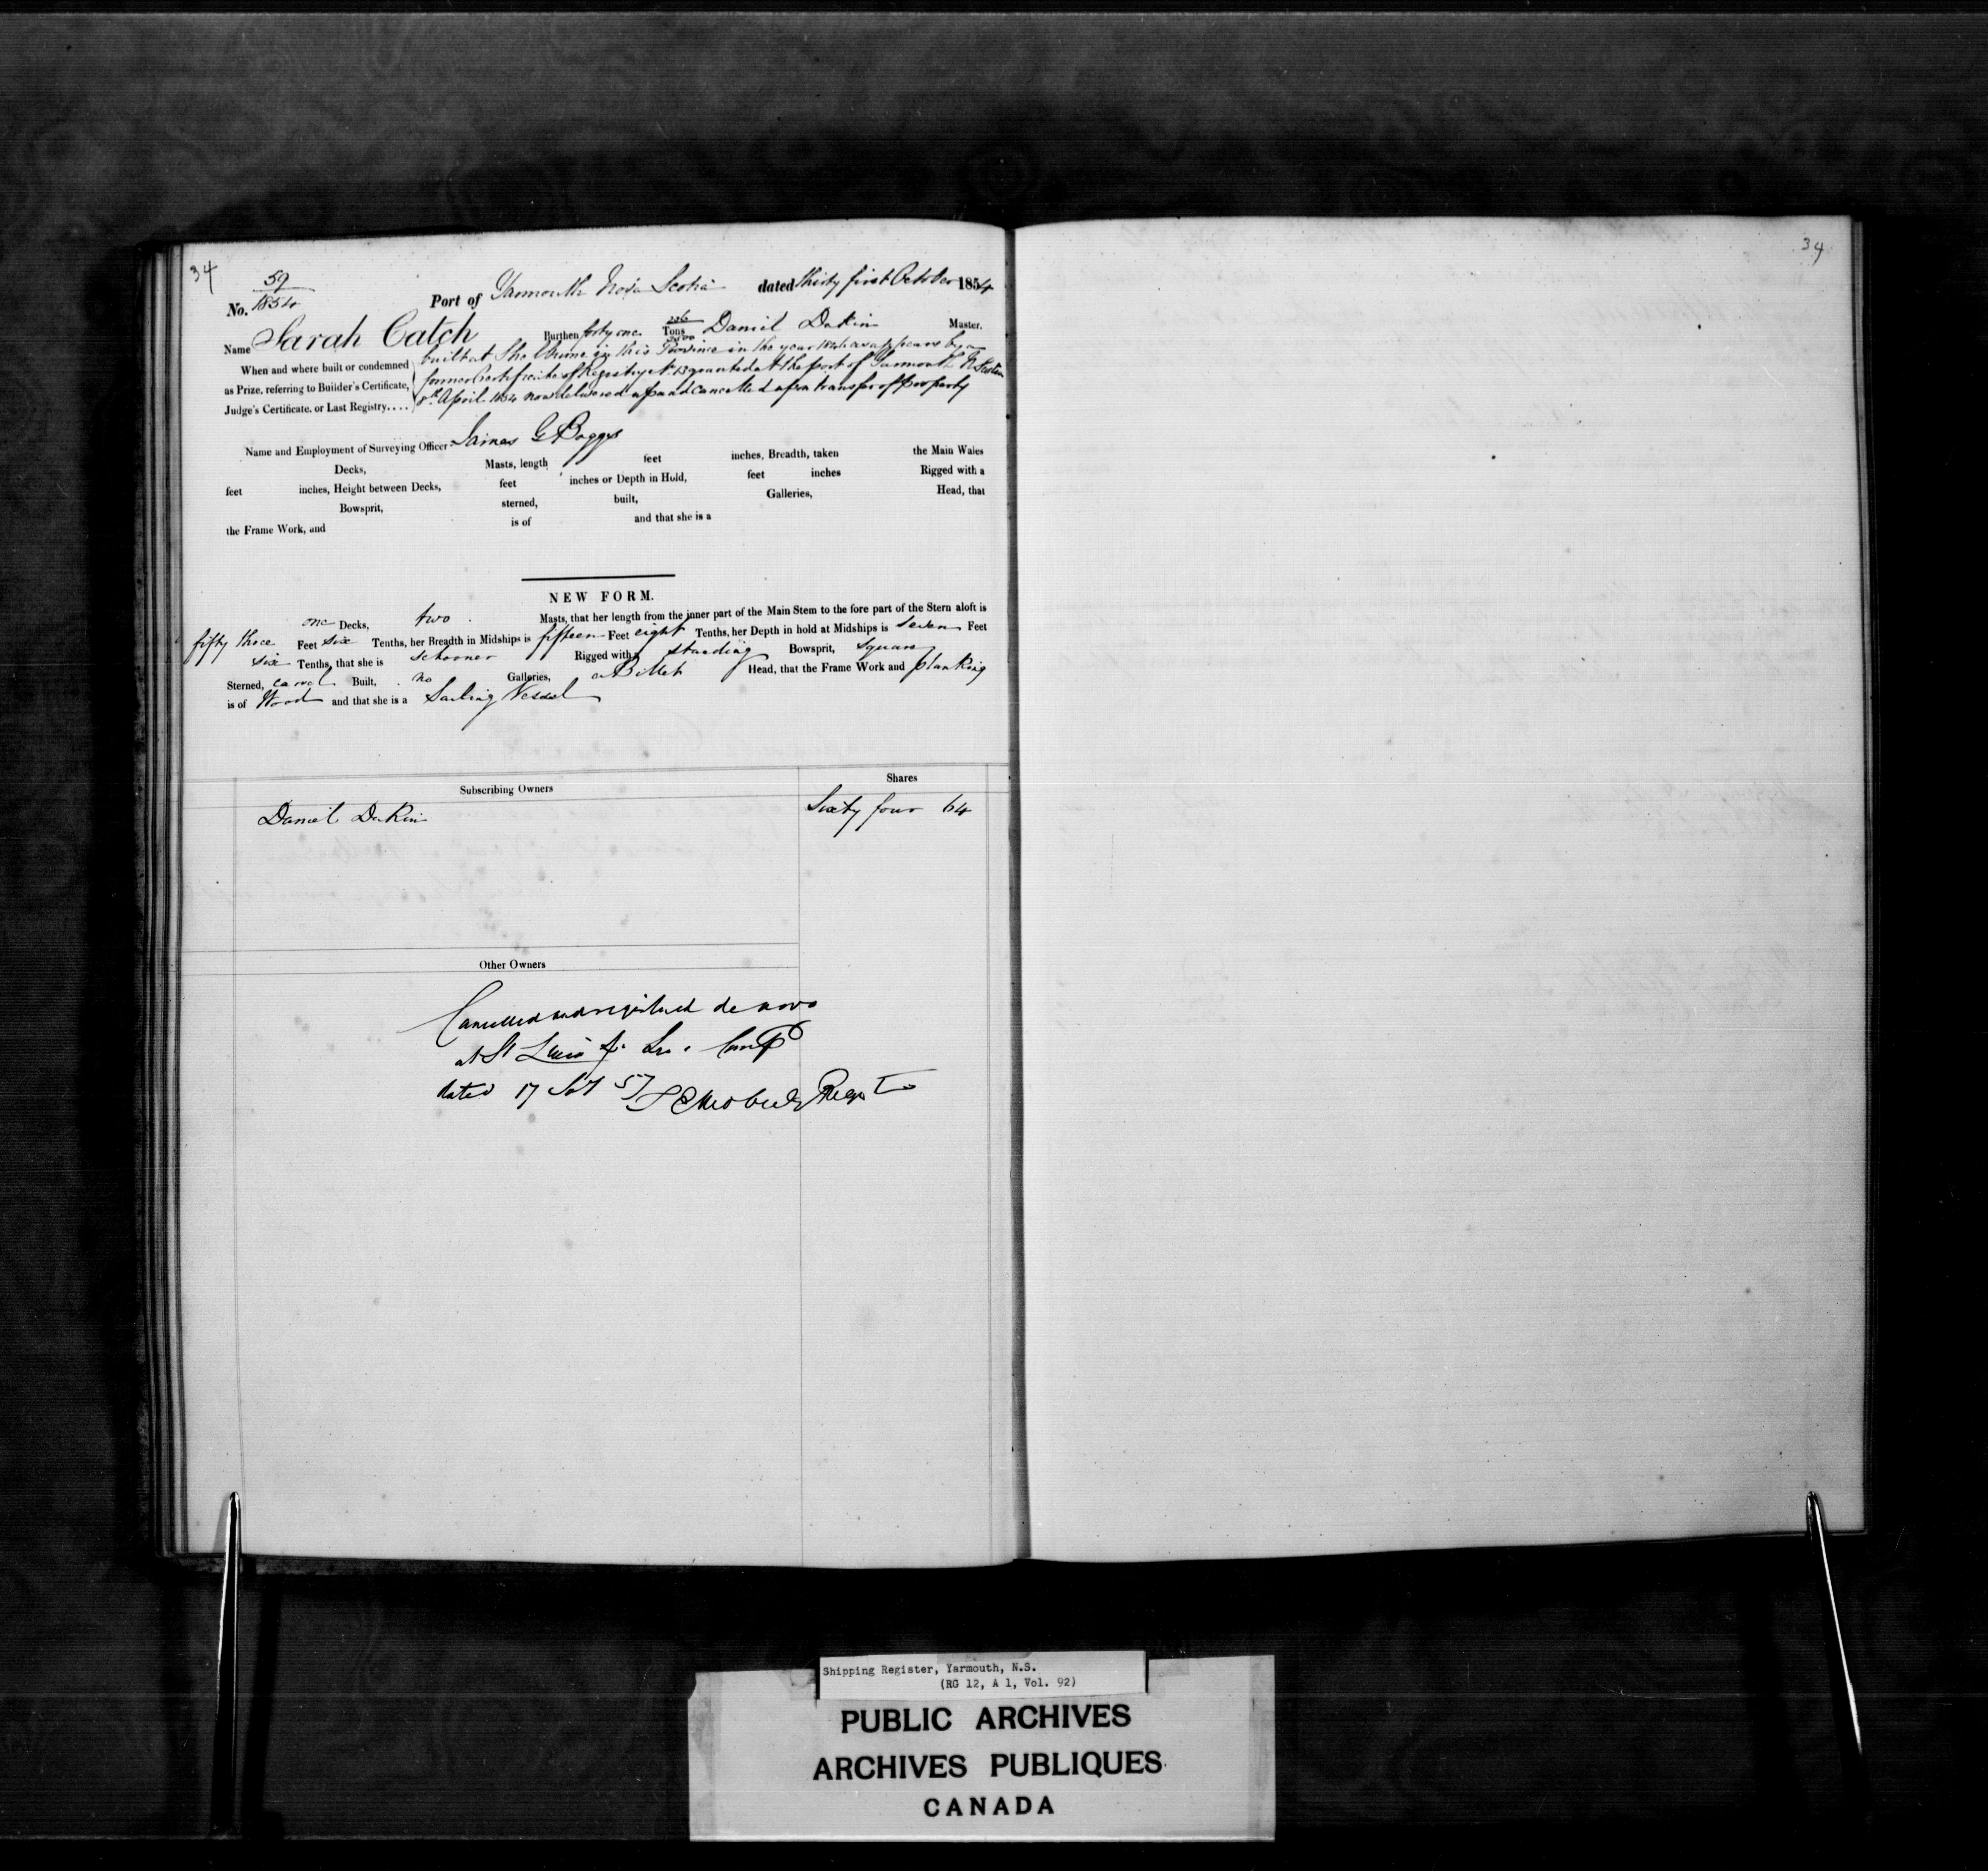 34
59
No. 1854 Port of Yarmouth Nova Scotia dated thirty first October 1854
Name Sarah Catch Burthen forty one Tons Daniel Dakin Master.
When and where built or condemned built at Shelburne in this Province in the year as appears by a
as Prize, referring to Builder's Certificate, former Certificate of Registry No. 13 granted at the port of Yarmouth N Scotia
Judge's Certificate. or Last Registry.... 8th April 1854 now delivered up and cancelled upon transfer of property
Name and Employment of Surveying Officer James G Boggs
Decks, Masts, length feet inches, Breadth, taken the Main Wales
feet inches, Height between Decks, feet inches or Depth in Hold, feet inches Rigged with a
Bowsprit, sterned, built, Galleries, Head, that
the Frame Work, and is of and that she is a
NEW FORM.
one Decks, two Masts, that her length from the inner part of the Main Stem to the fore part of the Stern aloft is
fifty three Feet six Tenths, her Breadth in Midships is fifteen Feet eight Tenths, her Depth in hold at Midships is seven Feet
six Tenths, that she is schooner Rigged with a standing Bowsprit, square
Sterned, carvel Built, no Galleries, a Billet Head, that the Frame Work and planking
is of Wood and that she is a Sailing Vessel
Subscribing Owners Shares
Daniel Dakin Sixty four 64
Other Owners
Cancelled and registered de novo
at St
dated 17 57
34
Shipping Register, Yarmouth, N.S.
(RG 12, A 1, Vol. 92)
PUBLIC ARCHIVES
ARCHIVES PUBLIQUES
CANADA